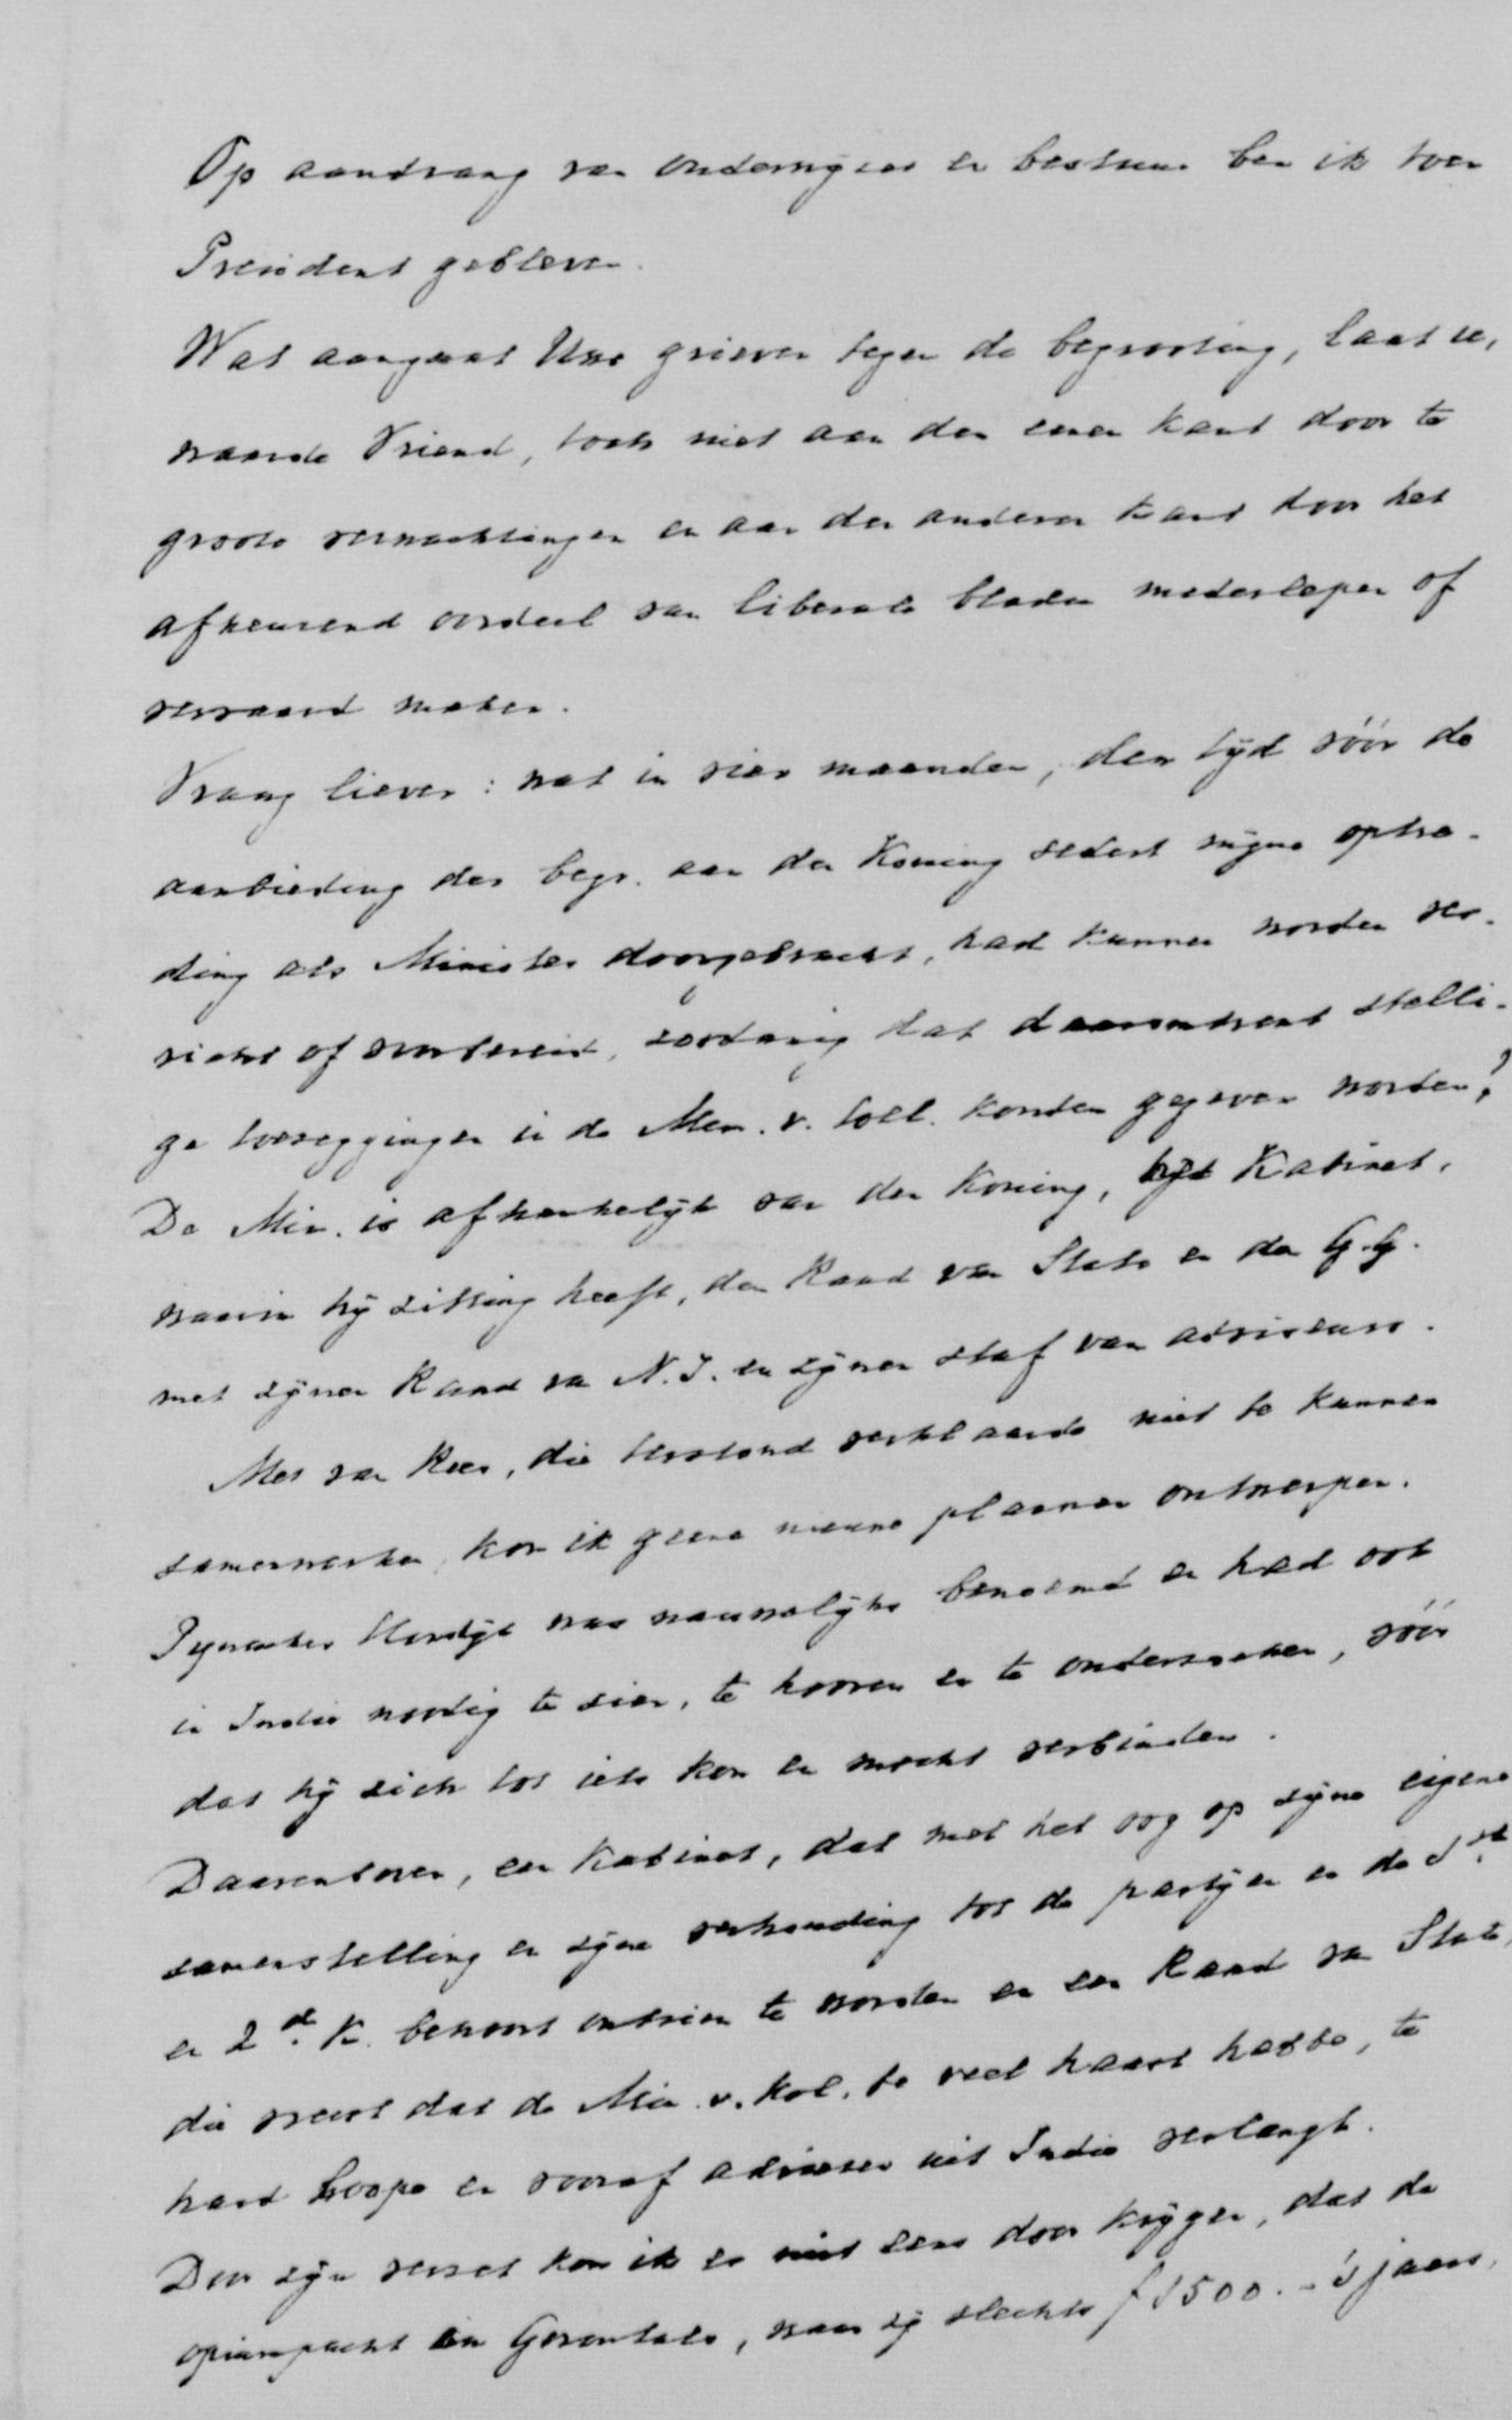 Op aandrang van onderwyzer en bestuur ben ik toen
President gebleven.
Wat aangaat Uwe grieven tegen de begrooting, laat U,
waarde Vriend, toch niet aan den eenen kant door te
groote verwachtingen en aan den anderen kant door het
afkeurend oordeel van liberale bladen medeslepen of
vervaard maken.
Vraag liever: wat in vier maanden, den tyd vóór de
aanbieding der begr. aan den Koning sedert myne optre-
ding als Minister doorgebracht, had kunnen worden ver-
richt of voorbereid, zoodanig dat daaromtrent stelli-
ge toezeggingen in de Mem. v. toel. konden gegeven worden?
De Min. is afhankelyk van den Koning, het Kabinet,
waarin hy zitting heeft, den Raad van State en den G.G.
met zynen Raad va N.I. en zynen staf van adviseurs.
Met van Rees, die terstond verklaarde niet te kunnen
samenwerken, kon ik geene nieuwe plannen ontwerpen.
Pynacker Hordyk was nauwelyks benoemd en had ook
in Indie noodig te zien, te hooren en te onderzoeken, vóór
dat hy zich tot iets kon en mocht verbinden.
Daarenboven, een Kabinet, dat met het oog op zyne eigene
samenstelling en zyne verhouding tot de partyen en de 1ste
en 2de K. behoort ontzien te worden en een Raad va State,
die vreest dat de Min. v. Kol. te veel haast hebbe, te
hard loope en vooraf adviezen uit Indie verlangt.
Door zyn verzet kon ik er niet eens door krygen, dat de
opiumpacht in Gorontalo, waar zy slechts f 1500.- 's jaars